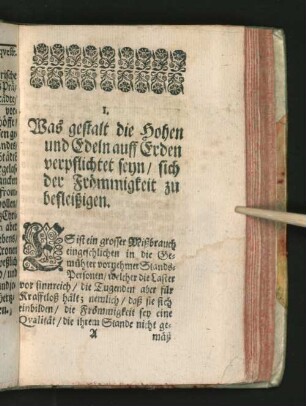 I.
Was gestalt die Hohen
und Edeln auff Erden
verpflichtet seyn / sich
der Frömmigkeit zu
befleißigen.
ES ist ein grosser Mißbrauch
eingeschlichen in die Ge-
müther vornehmer Stands-
Personen / welcher die Laster
vor sinnreich / die Tugenden aber für
Krafftloß hält; nemlich / daß sie sich
einbilden / die Frömmigkeit sey eine
Qvalität / die ihrem Stande nicht ge-
A mäß